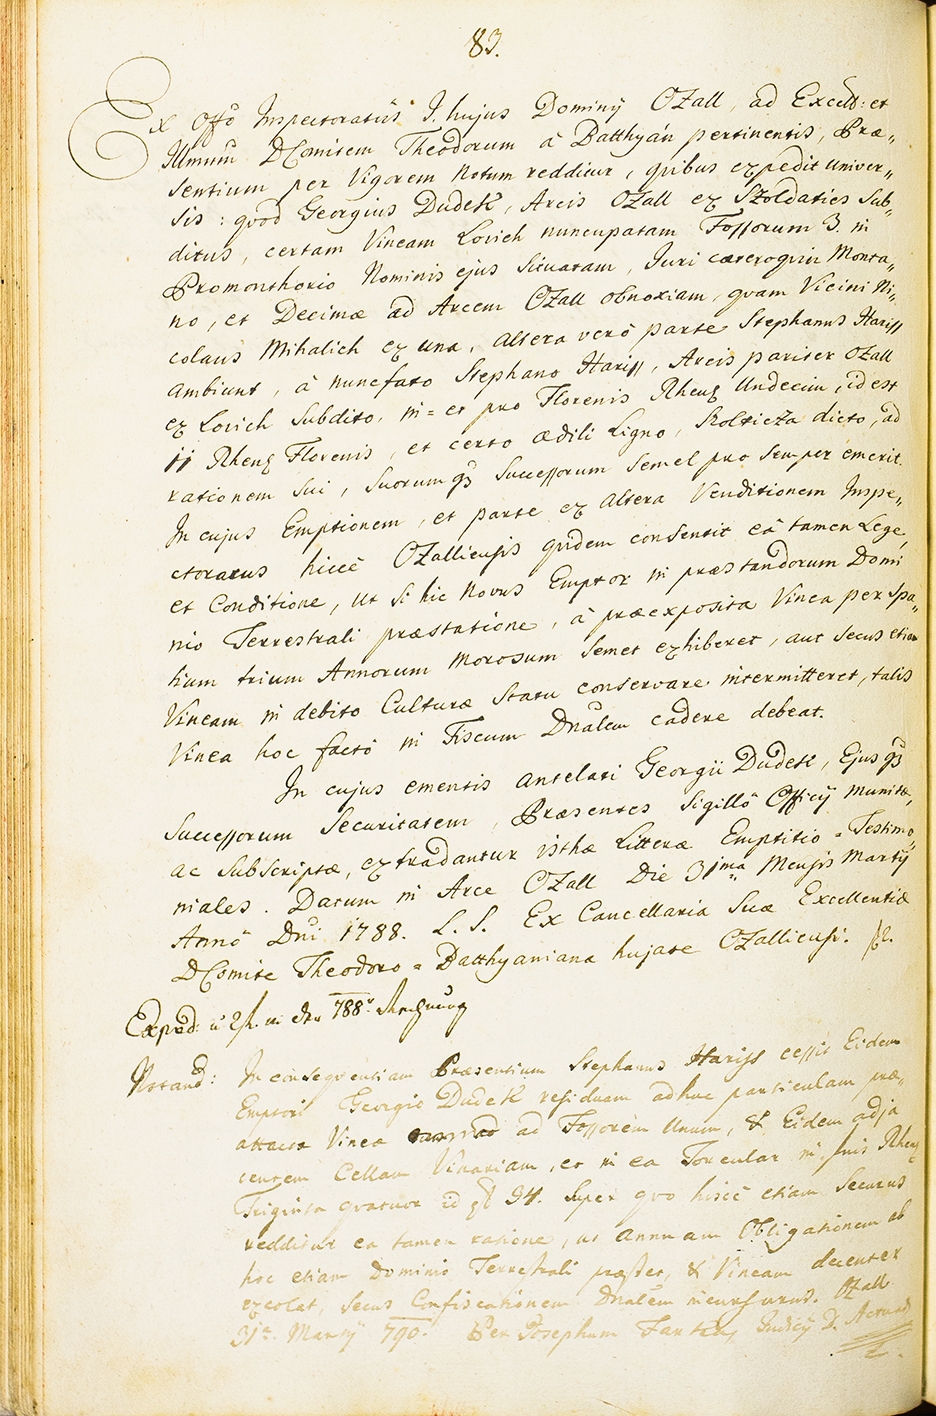 83.
Ex Offō Inspectoratûs I. hujus Dominÿ OZall, ad Excell: et
Illmum̄ D Comitem Theodorum à Batthyán pertinentis, Præ„
sentium per Vigorem Notum redditur, quibus expedit univer„
sis: qvod Georgius Dudek, Arcis OZall ex SZoldaties Sub„
ditus, certam Vineam Lovich nuncupatam Fossorum 3. in
Promonthorio Nominis ejus Situatam, Juri cæteroquin Monta„
no, et Decimæ ad Arcem OZall obnoxiam, qvam Vicini Ni„
colaus Mihalich ex una, altera verò parte Stephanus Hariss
ambiunt, à nunefato Stephano Hariss, Arcis pariter OZall
ex Lovich Subdito, in= et pro Florenis Rhens Undecim, id est
11 Rhens Florenis, et certo ædili Ligno, SkolticZa dicto, ad
rationem Sui, Suorumqȝ Successorum Semel pro Semper emerit.
In cujus Emptionem, et parte ex altera Venditionem Inspe„
ctoratus hiccè OZalliensis qvidem consentit eâ tamen Lege,
et Conditione, ut Si hic Novus Emptor in præstandorum Domi
nio Terrestrali præstatione, à præexposita Vinea per Spa„
tium trium Annorum Morosum Semet exhiberet, aut Secus etiam
Vineam in debito Culturæ Statu conservare intermitteret, talis
Vinea hoc facto in Fiscum Dnalem cadere debeat.
In cujus ementis antelati Georgii Dudek, Ejusqȝ
Successorum Securitatem, Præsentes Sigillô Officÿ munitæ,
ac Subscriptæ, extradantur isthæ Litteræ Emptitio = Testimo„
niales. Datum in Arce OZall Die 31ma Mensis Martÿ
Annô Dni 1788. L. S. Ex Cancellaria Suæ Excellentiæ
D Comite Theodoro = Batthyaniana hujate OZalliensi.
Exped: 788
Notand: In conseqventiam Præsentium Stephanus Hariss cessit Eidem
Emptori Georgio Dudek residuam adhuc particulam præ„
attactæ Vineæ ad Fossorem Unum, & Eidem adja
centem Cellam Vinariam, et in ea Torcular in Suis Rhens
Triginta qvatuor id est 34. Super qvo hiscè etiam Securus
redditur ea tamen ratione, ut annuam Obligationem ab
hoc etiam Dominio Terrestrali præstet, & Vineam decenter
excolat, Secus Confiscationem Dnalem incursurus. OZall
31a. Martÿ 790. Per Josephum Judicÿ D. Actuar